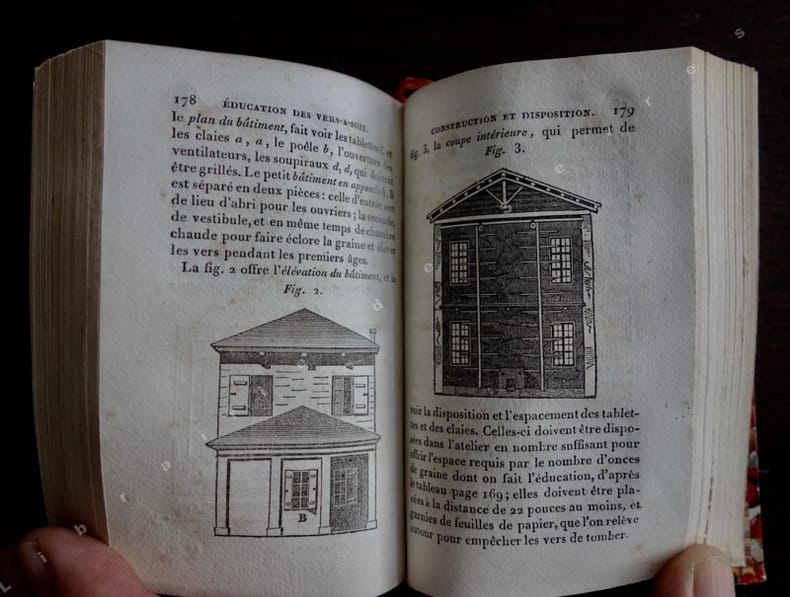 178 ÉDUCATION DES VERS-A-SOIE.
le plan du bâtiment, fait voir les tablettes C, et
les claies a, a, le poêle b, l'ouverture des
ventilateurs, les soupiraux d, d, qui doivent
être grillés. Le petit bâtiment en appentis A, B
est séparé en deux pièces : celle d'entrée sert
de lieu d'abri pour les ouvriers ; la seconde,
de vestibule, et en même temps de chambre
chaude pour faire éclore la graine et élever
les vers pendant les premiers âges.
La fig. 2 offre l'élévation du bâtiment, et la
Fig. 2.
B
CONSTRUCTION ET DISPOSITION. 179
fig. 3, la coupe intérieure, qui permet de
Fig. 3.
voir la disposition et l'espacement des tablet-
tes et des claies. Celles-ci doivent être dispo-
sées dans l'atelier en nombre suffisant pour
offrir l'espace requis par le nombre d'onces
de graine dont on fait l'éducation, d'après
le tableau page 169 ; elles doivent être pla-
cées à la distance de 22 pouces au moins, et
garnies de feuilles de papier, que l'on relève
autour pour empêcher les vers de tomber.